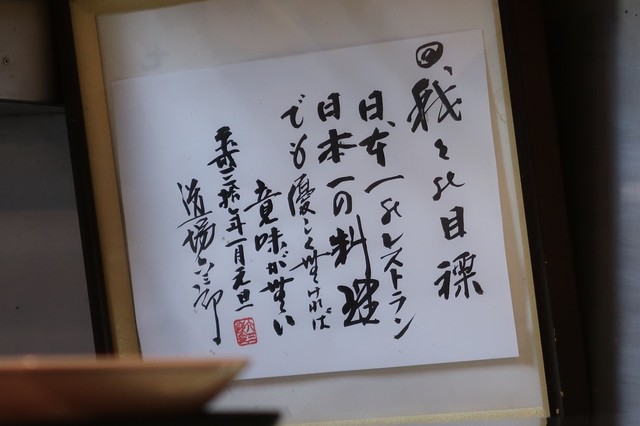 我々の目標
日本一のレストラン
日本一の料理
でも優しく無ければ
意味が無い
平成拾年一月元旦
道場六三郎